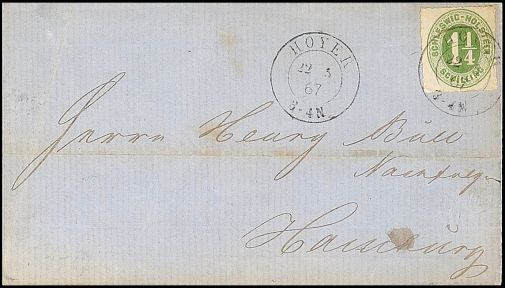 HOYER
22 3
67
3-4N.
SCHLESWIG-HOLSTEIN
1 1/4
SCHILLING
3-4N.
Herrn Henry Büll
Nachfolger
Hamburg